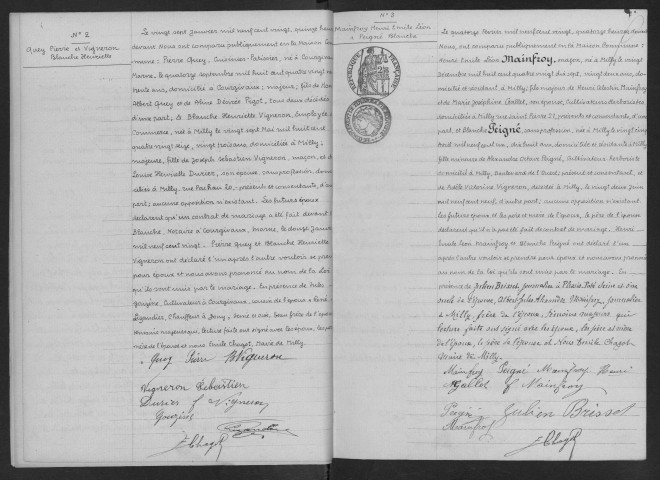 N° 2
Quey Pierre et Vigneron
Blanche Henriette
Le vingt sept Janvier mil neuf cent vingt, quinze heures
devant Nous ont comparu publiquement en la Maison Com-
mune: Pierre Quey, Cuisinier-Patissier, né à Courgivaux
Marne, le quatorze septembre mil huit cent quatre vingt neuf
trente ans, domicilié à Courgivaux; majeur; fils de
Albert Quey et de Décédés
d'une part, & Blanche Henriette Vigneron, Employée de
Commerce, née à Milly le vingt sept Mai mil huit cent
quatre vingt seize, vingt trois ans, domiciliée à Milly;
majeure, fille de Joseph Sébastien Vigneron, maçon, et de
Louise Henriette Durier, son épouse, sans profession, domi-
ciliés à Milly, rue présents et consentants, d'autre
part; aucune opposition n'existant. Les futurs époux
déclarent qu'un contrat de mariage a été fait devant
Blanche, Notaire à Courgivaux, Marne, le douze Janvier
mil neuf cent vingt. Pierre Quey et Blanche Henriette
Vigneron ont déclaré l'un après l'autre vouloir se prendre
pour époux et nous avons prononcé au nom de la Loi
qu'ils sont unis par le mariage. En présence de
Cultivateur à Courgivaux, cousin de l'époux & René
Chauffeur à Jouy, Seine & Oise, beau frère de l'époux
témoins majeurs qui, lecture faite ont signé avec les époux, les père
mère de l'épouse et nous Emile Chagot, Maire de Milly.
Quey Pierre B Vigneron
Vigneron Sébastien
Durier f Vigneron
E Chagot
N° 3
Mainfroy Henri Emile Léon
& Peigné Blanche
RÉPUBLIQUE FRANÇAISE
Le quatorze février mil neuf cent vingt, quatorze heures
Nous, ont comparu publiquement en la Maison Commune:
Henri Emile Léon Mainfroy, maçon, né à Milly le vingt
Décembre mil huit cent quatre vingt dix sept, vingt deux ans, do-
micilié et résidant à Milly; fils majeur de Henri Mainfroy
et de Marie Joséphine Gallot, son épouse, Cultivateurs
domiciliés à Milly rue Saint Pierre 21, présents et consentants d'une
part, et Blanche Peigné, sans profession, née à Milly le vingt
mil neuf cent un, dix huit ans, domiciliée et résidante à Milly,
fille mineure de Alexandre Peigné, Cultivateur
à Milly, présent et consentant, et
de Vigneron, décédée à Milly, le vingt deux
mil neuf cent neuf, d'autre part; aucune opposition n'existant.
Les futurs époux & les père et mère de l'époux, le père de l'épouse
déclarent qu'il n'a pas été fait de contrat de mariage. Henri
Emile Léon Mainfroy et Blanche Peigné ont déclaré l'un
après l'autre vouloir se prendre pour époux et nous avons prononcé
au nom de la Loi qu'ils sont unis par le mariage. En
présence de Julien Brissot, Journalier à Seine et Oise
oncle de l'épouse, Mainfroy, Journalier
à Milly frère de l'époux, témoins majeurs qui
lecture faite ont signé avec les époux, les père et mère
de l'époux, le père de l'épouse et Nous Emile Chagot
Maire de Milly.
Mainfroy Peigné Mainfroy Henri
Gallot f Mainfroy
Peigné Julien Brissot
Mainfroy
E Chagot